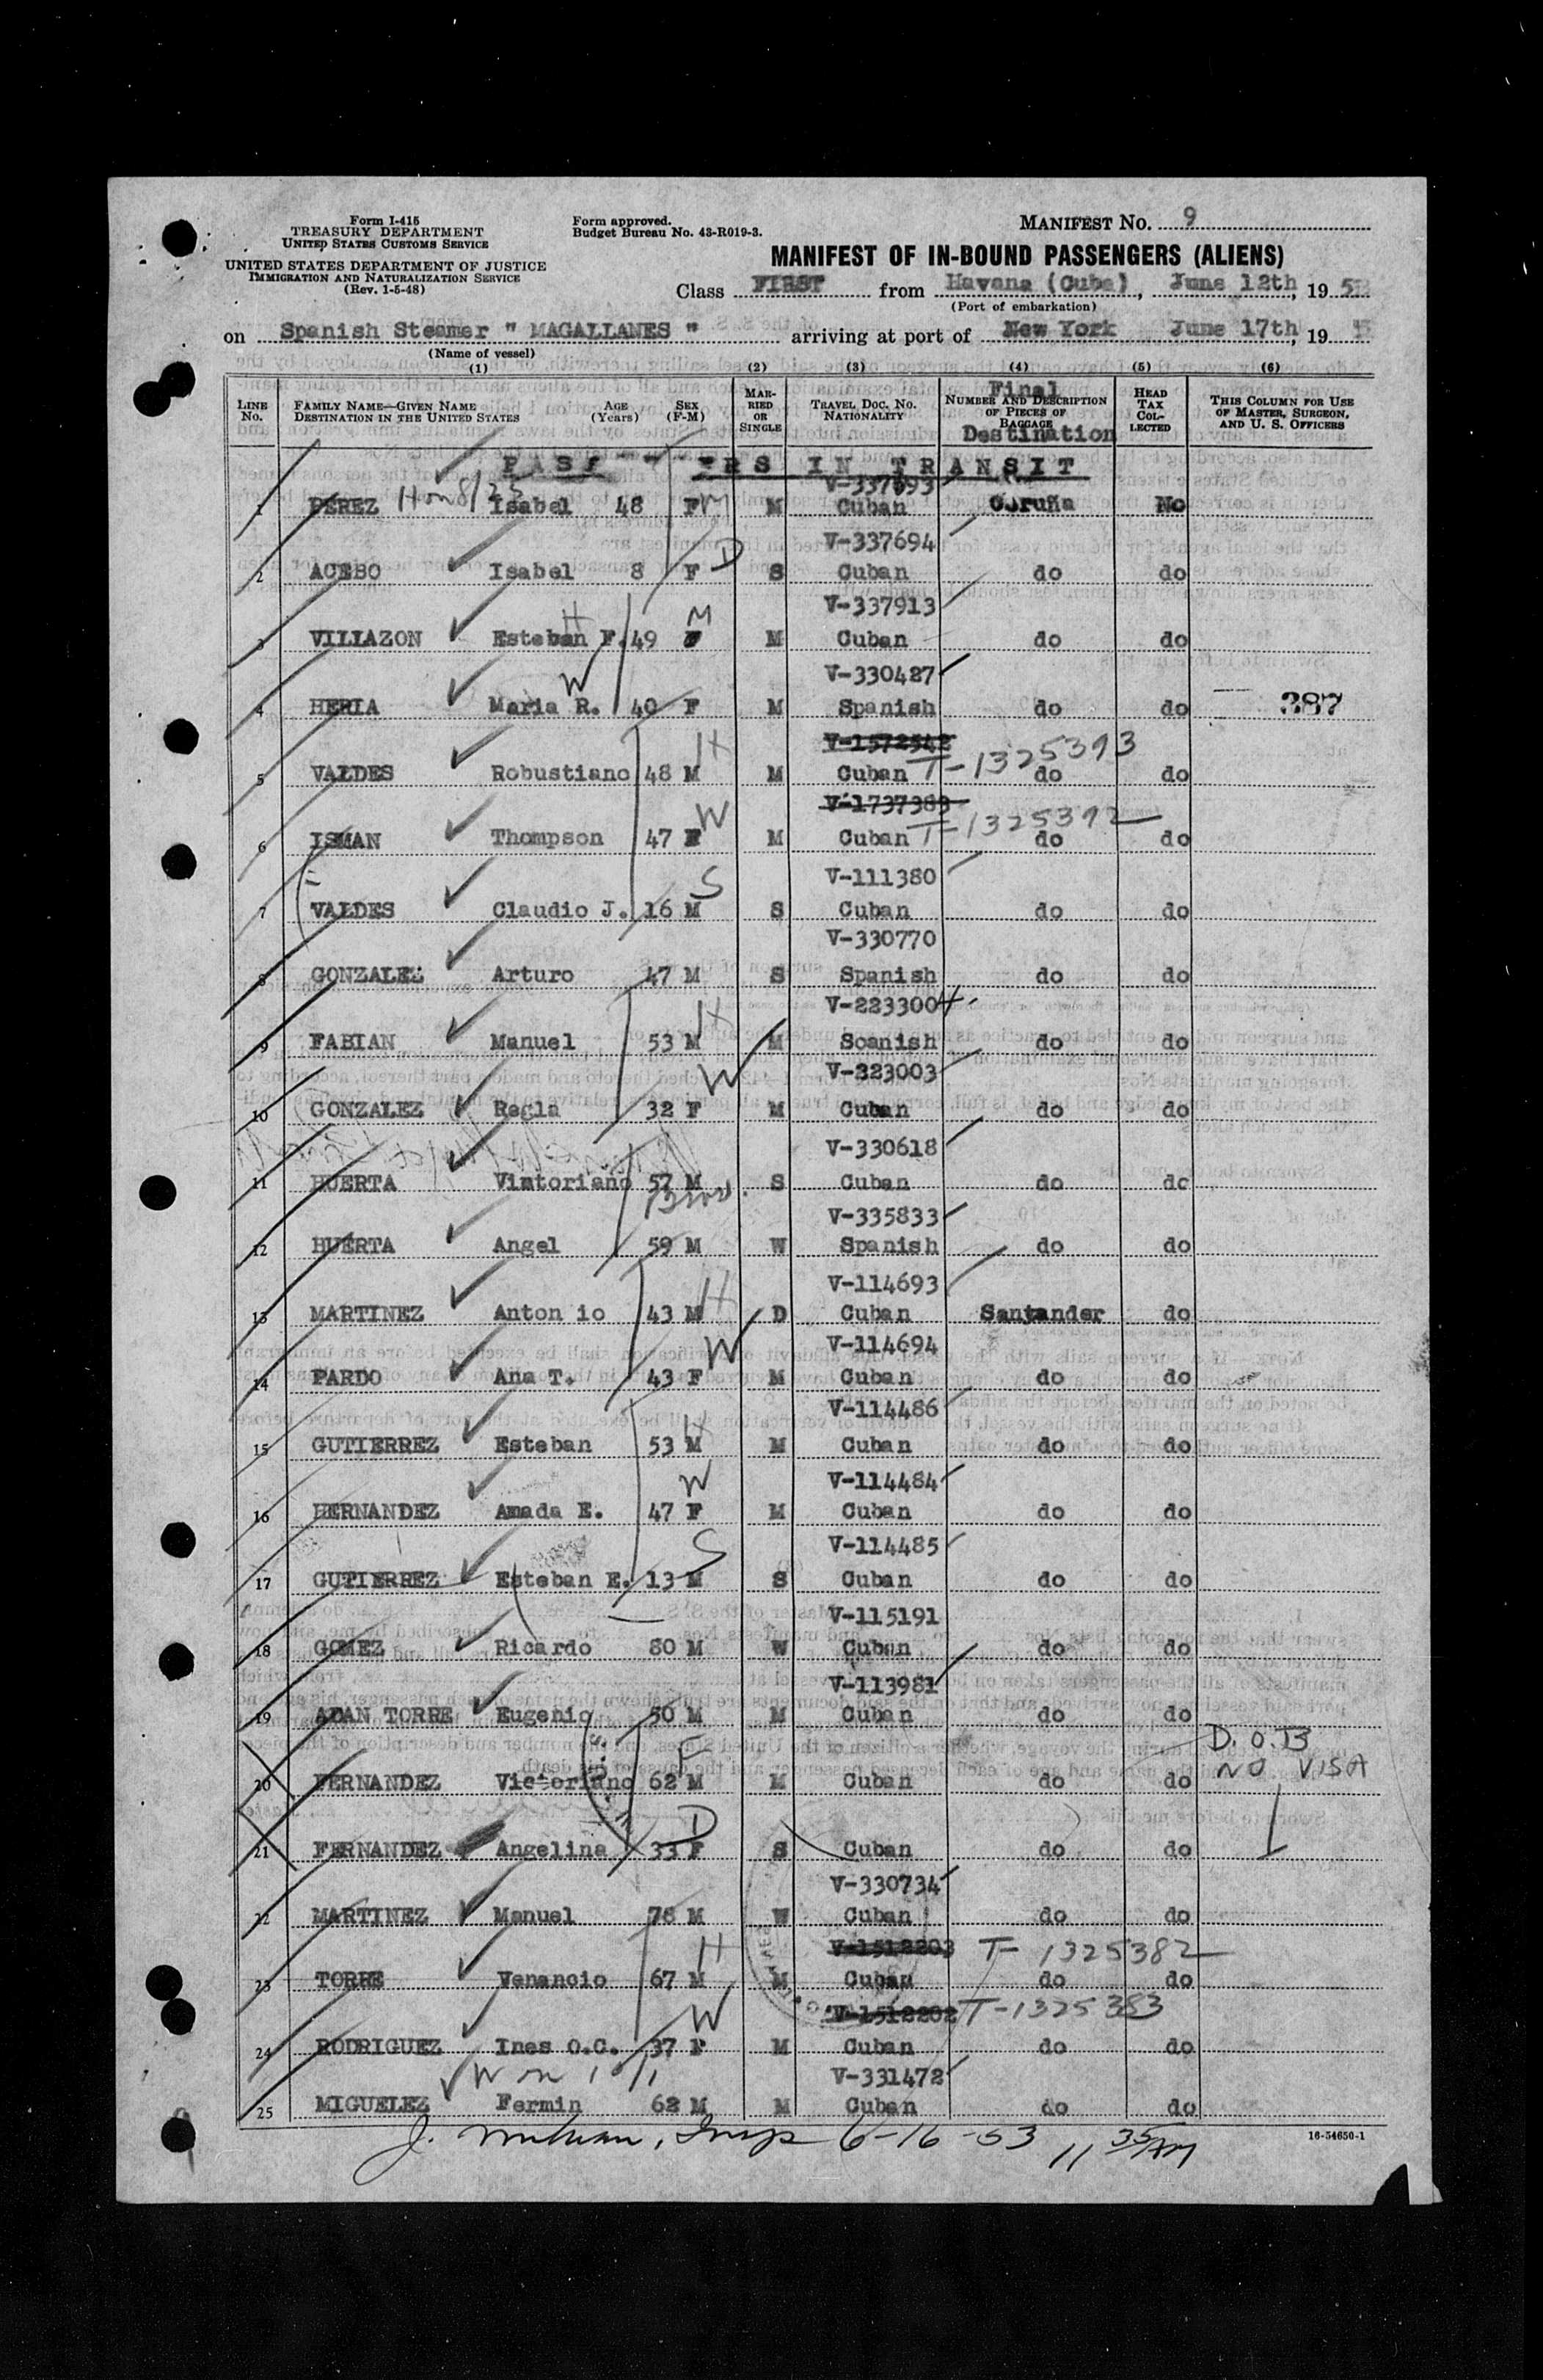 Form I-415
TREASURY DEPARTMENT
UNITED STATES CUSTOMS SERVICE
UNITED STATES DEPARTMENT OF JUSTICE
IMMIGRATION AND NATURALIZATION SERVICE
(Rev. 1-5-48)
Form approved.
Budget Bureau No. 43-R019-3.
MANIFEST NO. 9
MANIFEST OF IN-BOUND PASSENGERS (ALIENS)
Class FIRST from Havana (Cuba), June 12th, 1953
(Port of embarkation)
on Spanish Steamer " MAGALLANES " arriving at port of New York June 17th, 19
(Name of vessel)
(1) (2) (3) (4) (5) (6)
LINE NO. FAMILY NAME—GIVEN NAME DESTINATION IN THE UNITED STATES AGE (Years) SEX (F-M) MARRIED OR SINGLE TRAVEL DOC. NO. NATIONALITY Final NUMBER AND DESCRIPTION OF PIECES OF BAGGAGE Destination HEAD TAX COLLECTED THIS COLUMN FOR USE OF MASTER, SURGEON, AND U. S. OFFICERS
IN TRANSIT
V-337693
1 PEREZ Isabel 48 F M M Cuban Coruña No
V-337694
2 ACEBO Isabel 8 F D S Cuban do do
V-337913
3 VILLAZON Esteban F. 49 M M Cuban do do
H
V-330427
4 HERIA Maria R. 40 F M Spanish do do 387
W
V-1572542 T-1325393
5 VALDES Robustiano 48 M H M Cuban do do
V-1737383 T-1325392
6 ISMAN Thompson 47 F W M Cuban do do
V-111380
7 VALDES Claudio J. 16 M S S Cuban do do
V-330770
8 GONZALEZ Arturo 47 M S Spanish do do
V-2233004
9 FABIAN Manuel 53 M H M Soanish do do
V-223003
10 GONZALEZ Regla 32 F W M Cuban do do
V-330618
11 HUERTA Vintoriano 57 M S Cuban do do
V-335833
12 HUERTA Angel 59 M W Spanish do do
V-114693
13 MARTINEZ Anton io 43 M H D Cuban Santander do
V-114694
14 PARDO Ana T. 43 F W M Cuban do do
V-114486
15 GUTIERREZ Esteban 53 M H M Cuban do do
V-114484
16 HERNANDEZ Amada E. 47 F W M Cuban do do
V-114485
17 GUTIERREZ Esteban E. 13 M S S Cuban do do
V-115191
18 GOMEZ Ricardo 80 M W Cuban do do
V-113981
19 ADAN TORRE Eugenio 50 M M Cuban do do
20 FERNANDEZ Victoriano 62 M F M Cuban do do D.O.B NO VISA
21 FERNANDEZ Angelina 33 F D S Cuban do do
V-330734
22 MARTINEZ Manuel 76 M W Cuban do do
V-1512203 T-1325382
23 TORRE Venancio 67 M H M Cuban do do
V-1512202 T-1325383
24 RODRIGUEZ Ines O.C. 37 F W M Cuban do do
V-331472
25 MIGUELEZ Fermin 62 M M Cuban do do
6-16-53 11 35 AM
16-54650-1